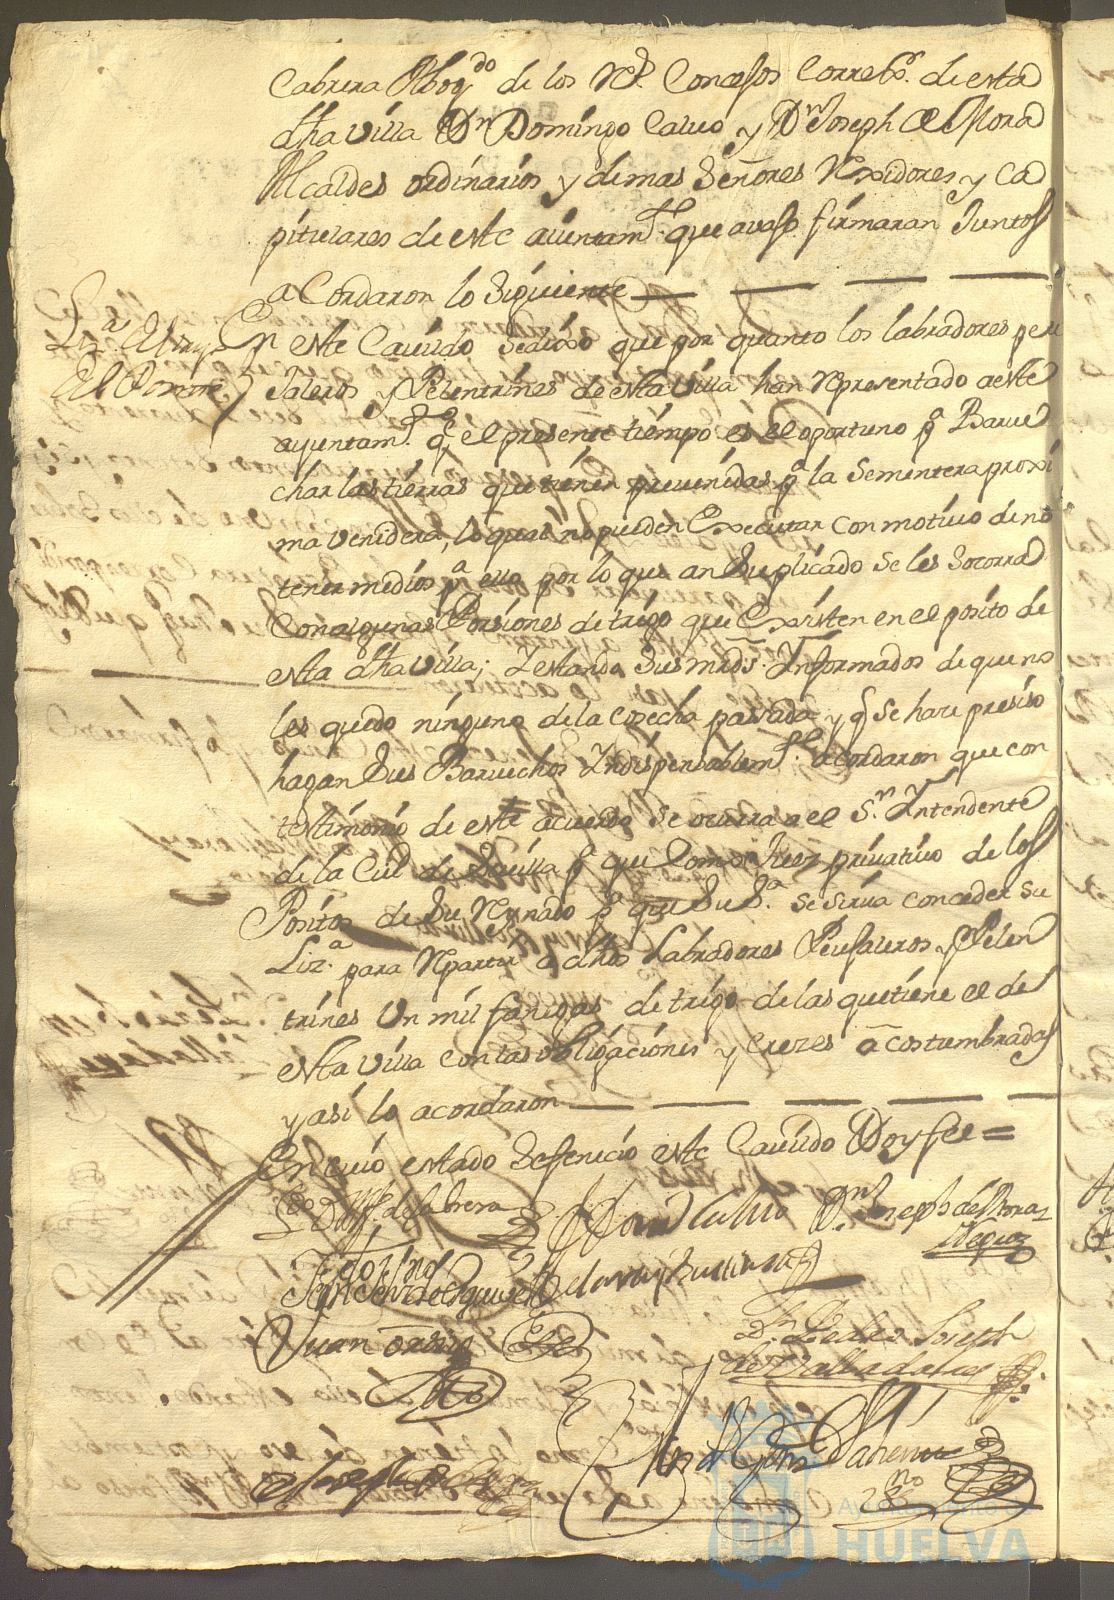 Cabrera Abogdo de los Rs. Concejos Correxr. de esta
dha villa Dn Domingo Calvo y Dn Joseph de Mora
Alcaldes ordinarios y demas Señores Rexidores y ca
pitulares de este aiuntamto. que avajo firmaran Juntos
acordaron lo Siguiente
Liza
En este Cavildo Se dixo que por quanto los labradores peu
Jaleros y Pelentrines de esta villa han Representado a este
ayuntamto. q. el presente tiempo es el oportuno pa. Barve
char las tierras que tienen prevenidas pa. la Sementera proxi
ma venidera, lo qual no pueden Executar con motivo de no
tener medios pa ello por lo que an Suplicado se les Socorra
Con algunas Porsiones de trigo que Existen en el posito de
esta dha villa; y estando Sus mrds. Informados de que no
les quedo ninguno de la Cosecha pasada y q. se hace presiso
hagan Sus Barvechos Yndispensablemte. acordaron que con
testimonio de este acuerdo se ocurra a el Sr. Yntendente
de la Ciud. de Sevilla pa. que Como Juez privativo de los
Positos de Su Reynado pa. que Su Sa. se sirva conceder su
Liza. para Repartir a dhos Labradores Peujaleros y Pelen
trines Un mil fanegas de trigo de las que tiene el de
esta villa con las obligaciones y creces acostumbradas
y asi lo acordaron
En cuio estado Se fenecio este Cavildo Doy fee =
Ldo Dn de Cabrera
Domo Calvo
Dn Joseph de Mora
Negron
Juan
Dn Pedro Joseph
de Valladolid
Ayuntamiento de
HUELVA